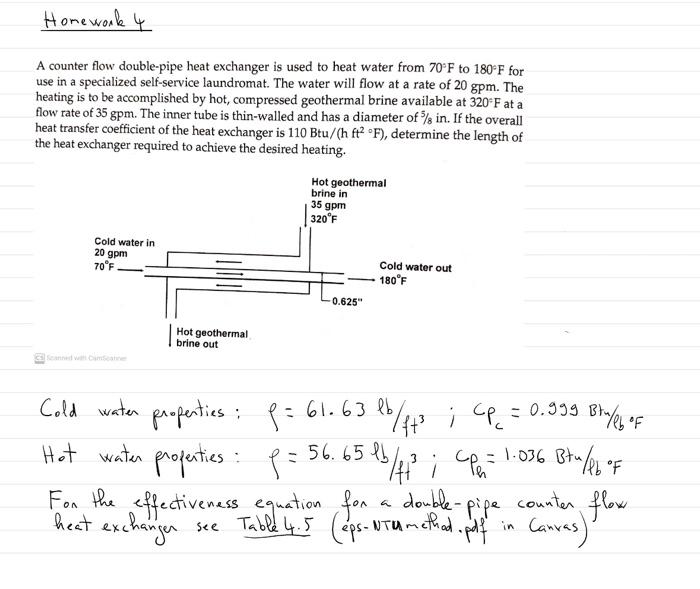 Homework 4
A counter flow double-pipe heat exchanger is used to heat water from 70°F to 180°F for
use in a specialized self-service laundromat. The water will flow at a rate of 20 gpm. The
heating is to be accomplished by hot, compressed geothermal brine available at 320°F at a
flow rate of 35 gpm. The inner tube is thin-walled and has a diameter of ⅝ in. If the overall
heat transfer coefficient of the heat exchanger is 110 Btu/(h ft² °F), determine the length of
the heat exchanger required to achieve the desired heating.
Hot geothermal
brine in
35 gpm
320°F
Cold water in
20 gpm
70°F
Cold water out
180°F
0.625"
Hot geothermal
brine out
CS Scanned with CamScanner
Cold water properties : ρ = 61.63 lb/ft³ ; Cpc = 0.999 Btu/lb °F
Hot water properties : ρ = 56.65 lb/ft³ ; Cph = 1.036 Btu/lb °F
For the effectiveness equation for a double-pipe counter flow
heat exchanger see Table 4.5 (eps-NTU method.pdf in Canvas)